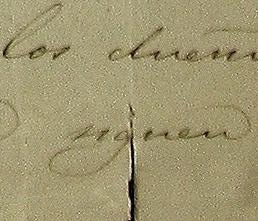 los dueñ
siguen